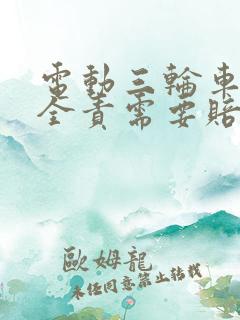 電動三輪車
全責需要賠
歐姆龍
未任同意禁止轉載